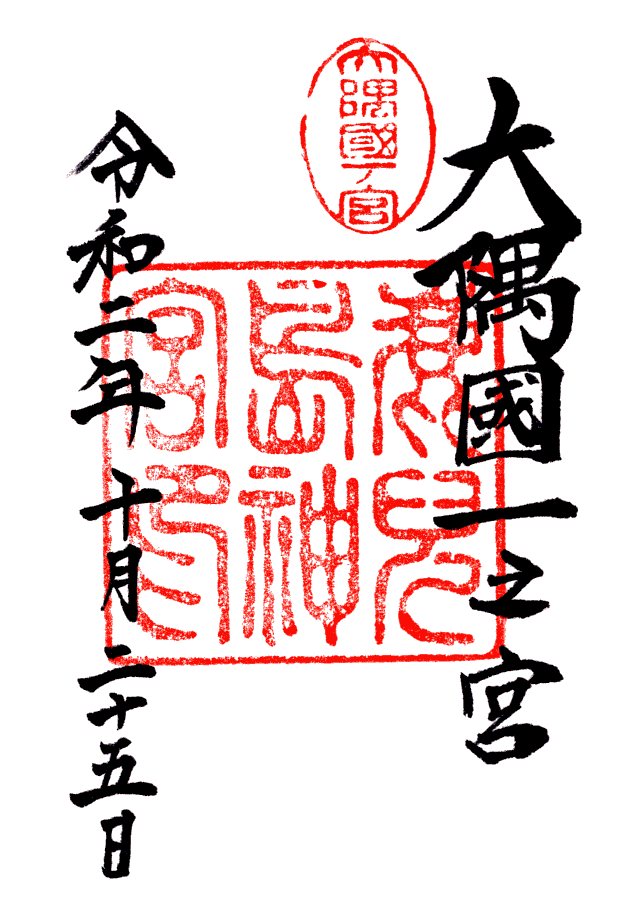 大隅國一之宮
大隅國一ノ宮
鹿兒
島神
宮印
令和二年十月二十五日